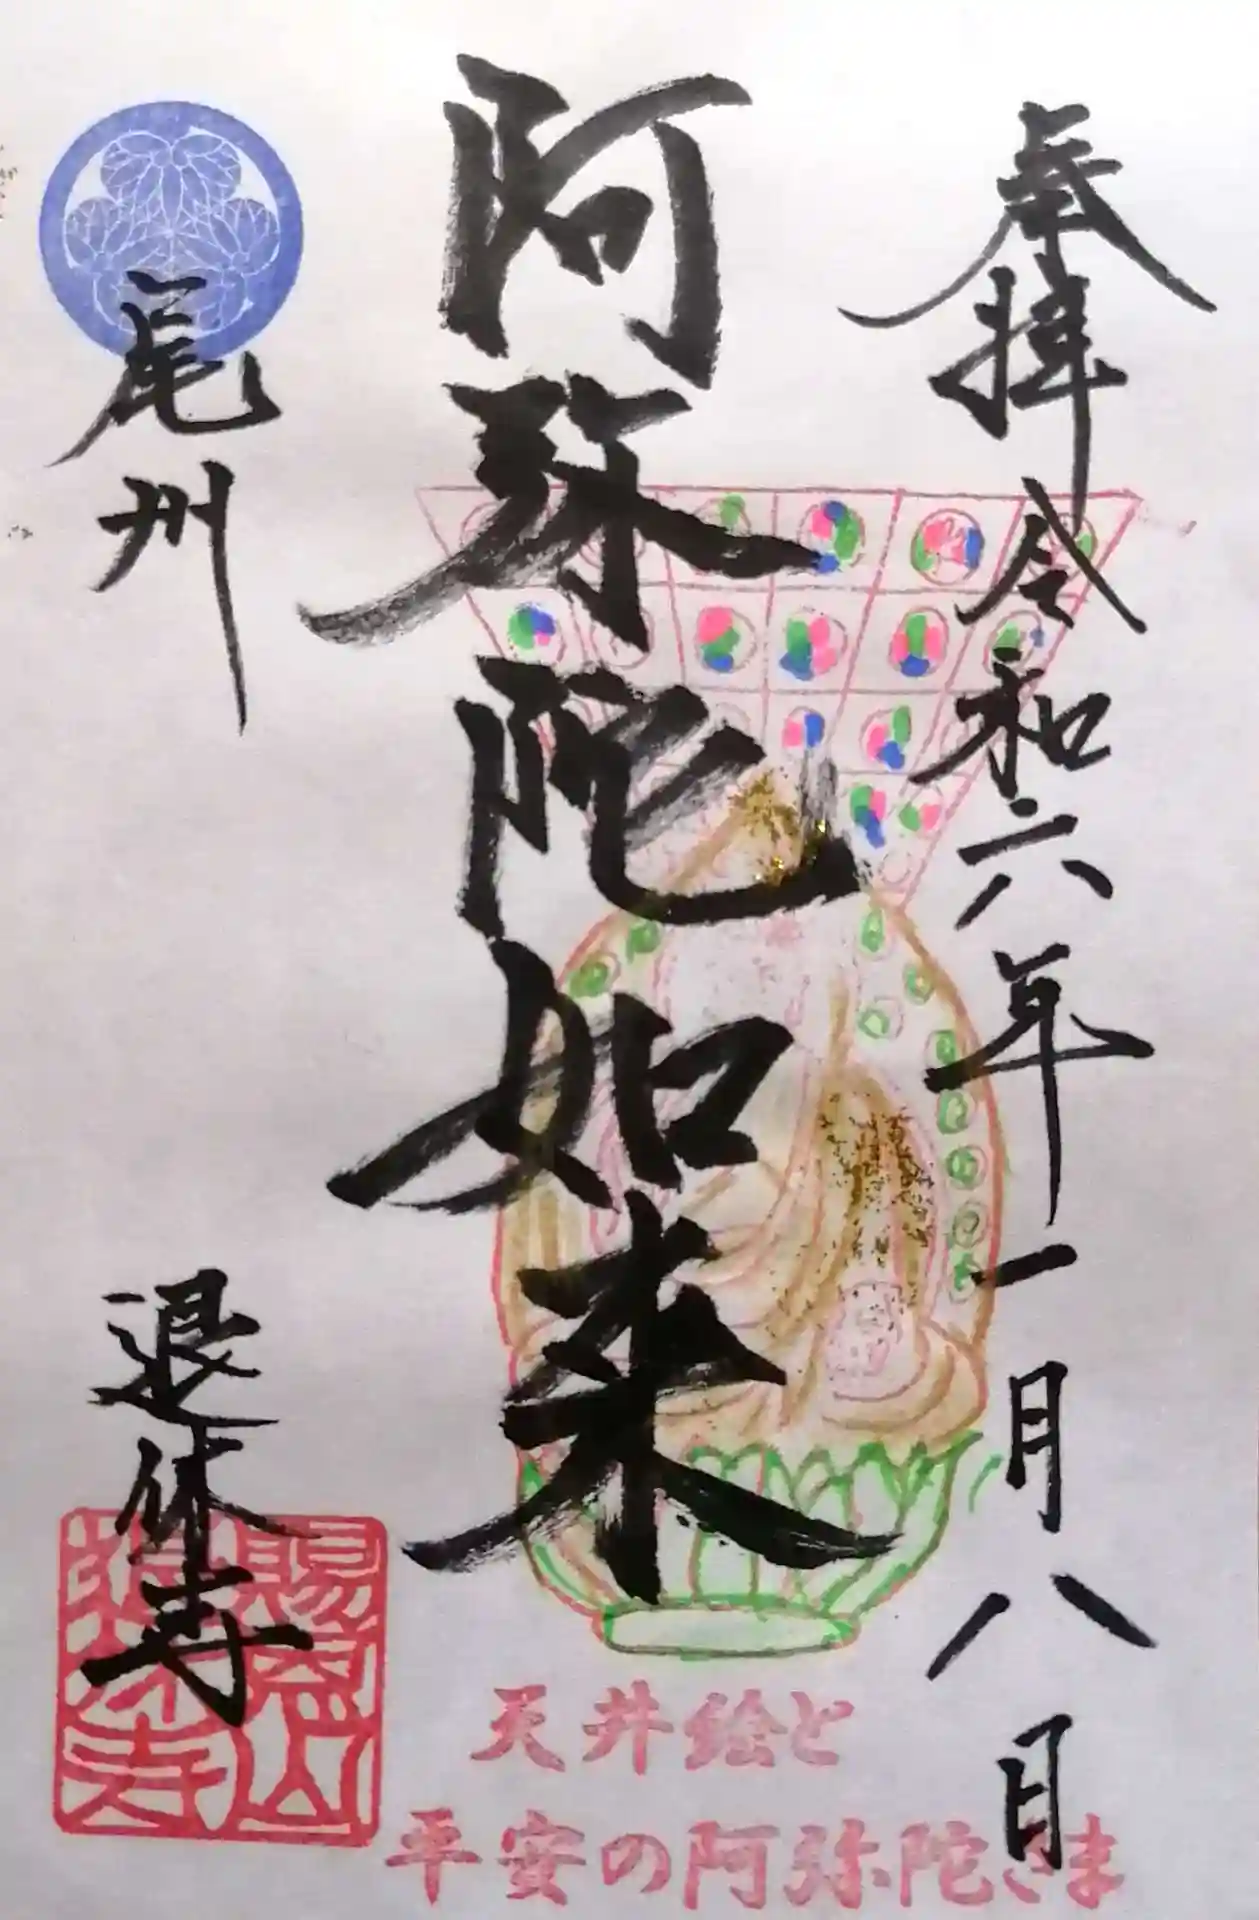 奉拝 令和六年一月八日
阿弥陀如来
尾州
退休寺
賜谷山
退休寺
天井絵と
平安の阿弥陀さま